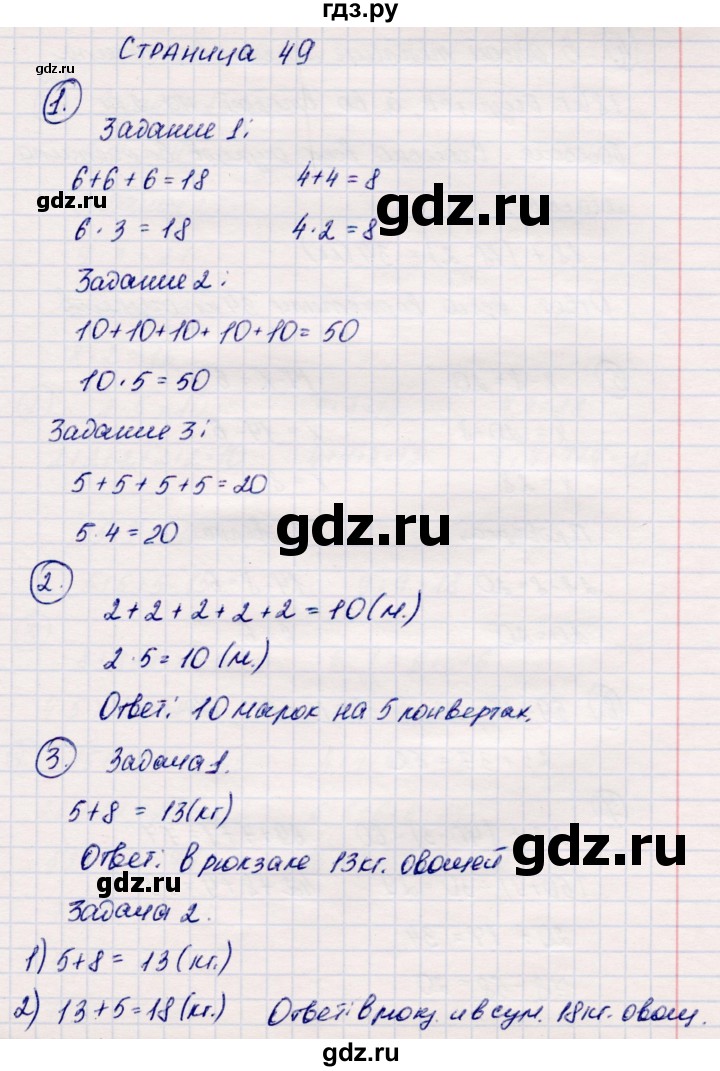 гдз.ру
Страница 49
gdz.ru
1.
Задание 1:
6+6+6=18 4+4=8
gdz.ru
gdz.ru
6·3=18 4·2=8
Задание 2:
10+10+10+10+10=50
10·5=50
Задание 3:
5+5+5+5=20
gdz.ru
5·4=20
2.
2+2+2+2+2=10(м.)
2·5=10(м.)
Ответ: 10 марок на 5 конвертах.
3. Задача 1.
5+8=13(кг)
gdz.ru
Ответ: в рюкзаке 13кг. овощей
gdz.ru
Задача 2.
1) 5+8=13(кг.)
2) 13+5=18(кг.) Ответ: в рюкз. и в сум. 18кг. овощ.
gdz.ru